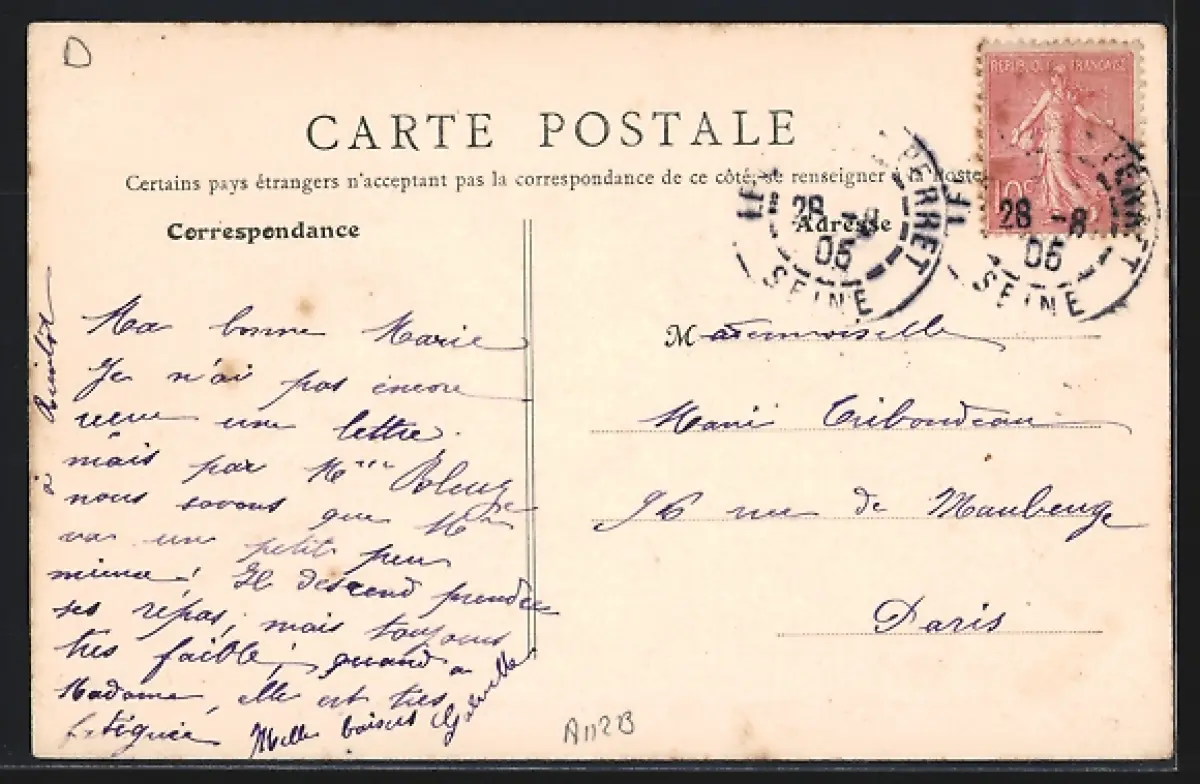 CARTE POSTALE
Certains pays étrangers n'acceptent pas la correspondance de ce côté, se renseigner à la Poste
Correspondance
Adresse
REPUBLIQUE FRANÇAISE
10c
PERRET
28 -8
05
SEINE
28 -8
05
SEINE
Ma bonne Marie
Je n'ai pas encore
reçue une lettre.
mais par Mme
nous savons que Mr
va un petit peu
mieux! Il descend prendre
ses répas, mais toujours
très faible; quand a
Madame, elle est très
fatiguée Mille baisers
à
Mademoiselle
Marie Triboudeau
96 rue de Maubeuge
Paris
A112B